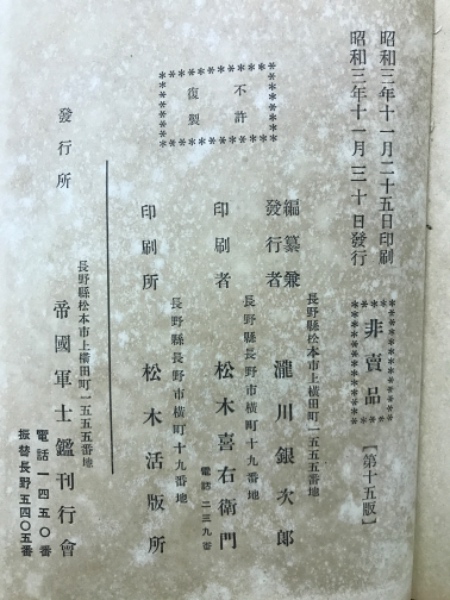 昭和三年十一月二十五日印刷
昭和三年十一月三十日發行
非賣品
【第十五版】
不許
復製
長野縣松本市上橫田町一五五五番地
編纂兼
發行者
瀧川銀次郎
長野縣長野市橫町十九番地
印刷者
松木喜右衛門
電話二三九番
長野縣長野市橫町十九番地
印刷所
松木活版所
發行所
長野縣松本市上橫田町一五五五番地
帝國軍士鑑刊行會
電話一四五〇番
振替長野五四〇五番